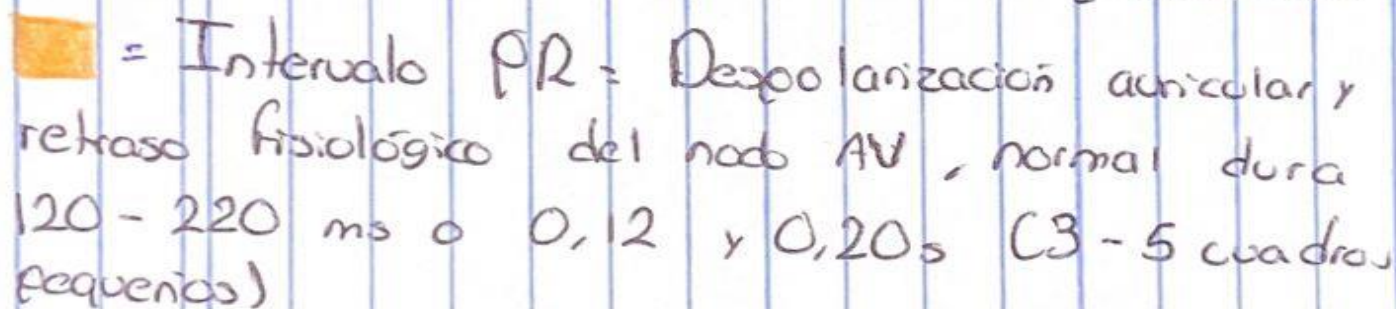 = Intervalo PR = Despolarización auricular y
retraso fisiológico del nodo AV, normal dura
120 - 220 ms o 0,12 y 0,20s (3 - 5 cuadros
pequeños)